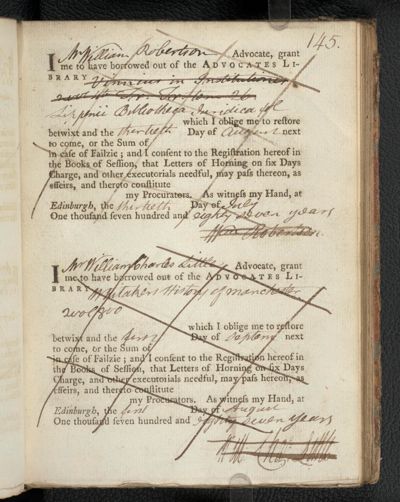 145.
I Mr William Robertson Advocate, grant
me to have borrowed out of the ADVOCATES LI-
BRARY Vinnius in Institutiones
Lipenii Bibliotheca Juridica
which I oblige me to restore
betwixt and the thertieth Day of August next
to come, or the Sum of
in case of Failzie; and I consent to the Registration hereof in
the Books of Session, that Letters of Horning on six Days
Charge, and other executorials needful, may pass thereon, as
effeirs, and thereto constitute
my Procurators. As witness my Hand, at
Edinburgh, the thertieth Day of July
One thousand seven hundred and eighty seven years
Wm Robertson.
I Mr William Charles Little Advocate, grant
me to have borrowed out of the ADVOCATES LI-
BRARY Whitakers History of Manchester
2 vol 8vo
which I oblige me to restore
betwixt and the first Day of Septemr next
to come, or the Sum of
in case of Failzie; and I consent to the Registration hereof in
the Books of Session, that Letters of Horning on six Days
Charge, and other executorials needful, may pass thereon, as
effeirs, and thereto constitute
my Procurators. As witness my Hand, at
Edinburgh, the first Day of August
One thousand seven hundred and eighty seven years
Wm Chas Little